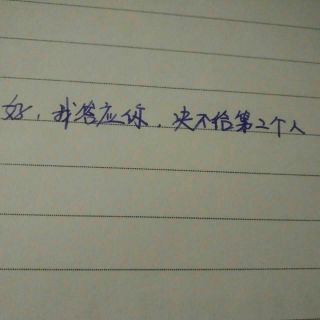 好，我答应你，决不给第2个人